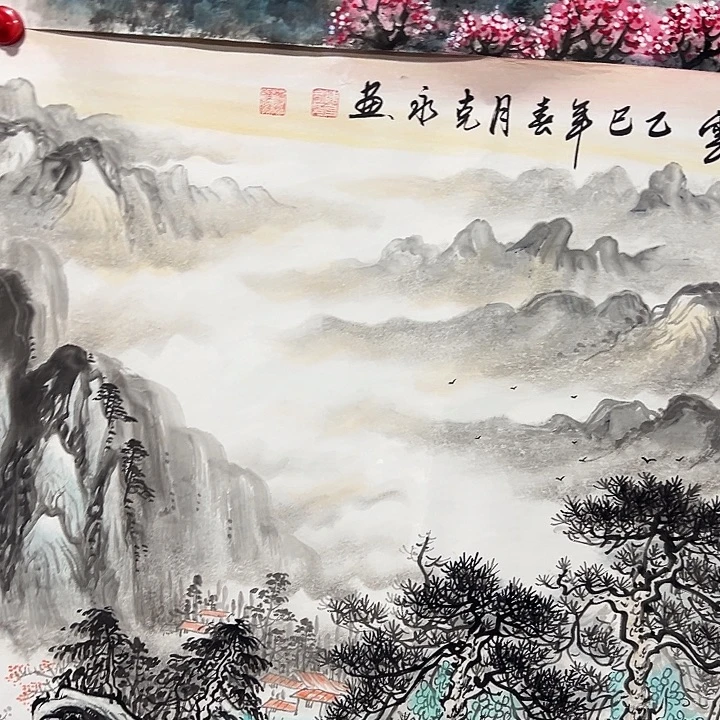 雲 乙巳年春月克永画